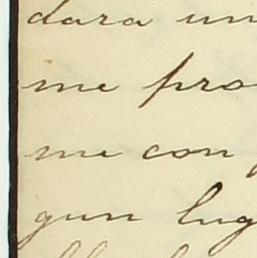 dara un
me pro
me con
gun lug